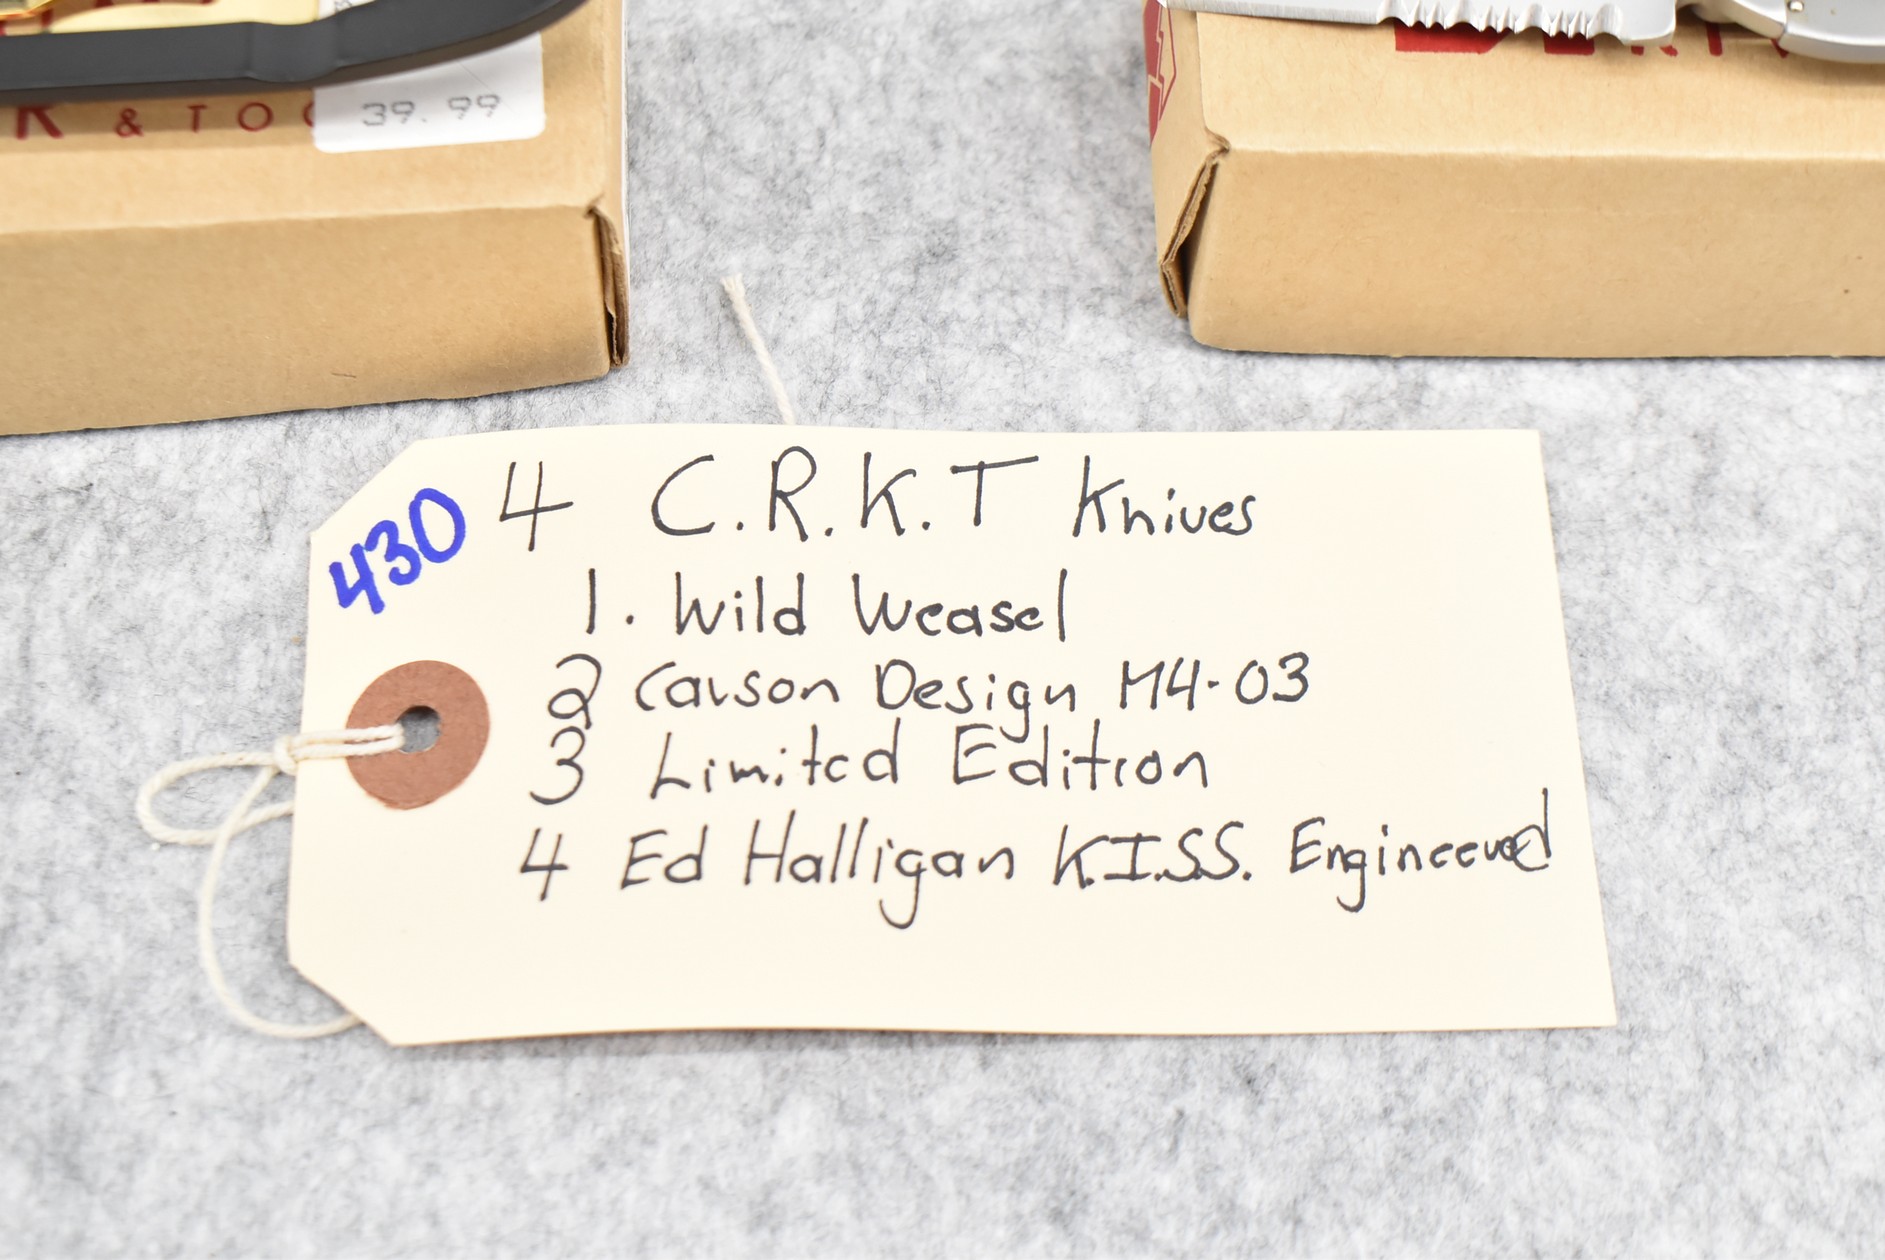 R & TOO
39.99
430
4 C.R.K.T Knives
1. Wild Weasel
2 Carson Design M4-03
3 Limited Edition
4 Ed Halligan K.I.S.S. Engineered